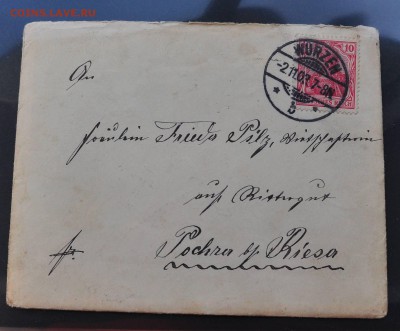 WURZEN
-2.11.03. 7-8N.
* b *
10
An
Fräulein Frieda Pilz, Wirtschafterin
auf Rittergut
fr. Pochra b/ Riesa